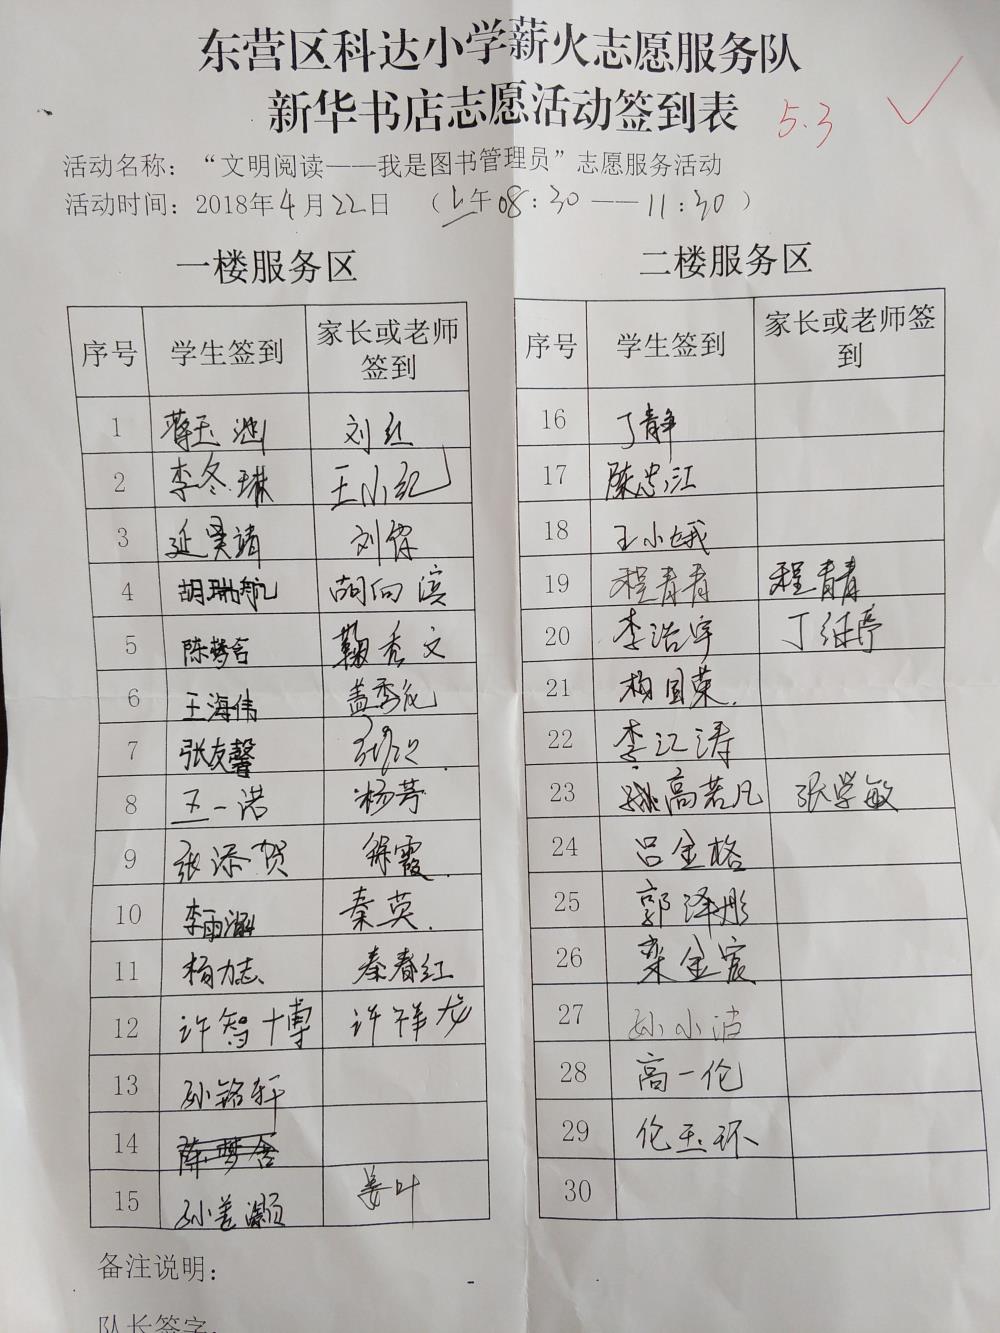 东营区科达小学薪火志愿服务队
新华书店志愿活动签到表
5.3
活动名称：“文明阅读——我是图书管理员”志愿服务活动
活动时间：2018年4月22日 （上午08:30——11:30）
一楼服务区
序号 学生签到 家长或老师签到
1 蒋玉池 刘红
2 李冬琳 王小纪
3 延昊靖 刘倩
4 胡瑞航 胡向滨
5 陈梦含 鞠秀文
6 王海伟
7 张友馨
8 王一诺 杨芳
9 张添贺 徐霞
10 李雨涵 秦英
11 杨力志 秦春红
12 许智博 许祥龙
13 孙铭轩
14 陈梦含
15 孙善灏 姜叶
二楼服务区
序号 学生签到 家长或老师签到
16 丁静
17 陈忠江
18 王小娥
19 程青青 程青青
20 李浩宇 丁继亭
21 杨国荣
22 李江涛
23 姚高若凡 张学敏
24 吕金格
25 郭泽彤
26 栾金宸
27 孙小洁
28 高一伦
29 伦玉环
30
备注说明：
队长签字：